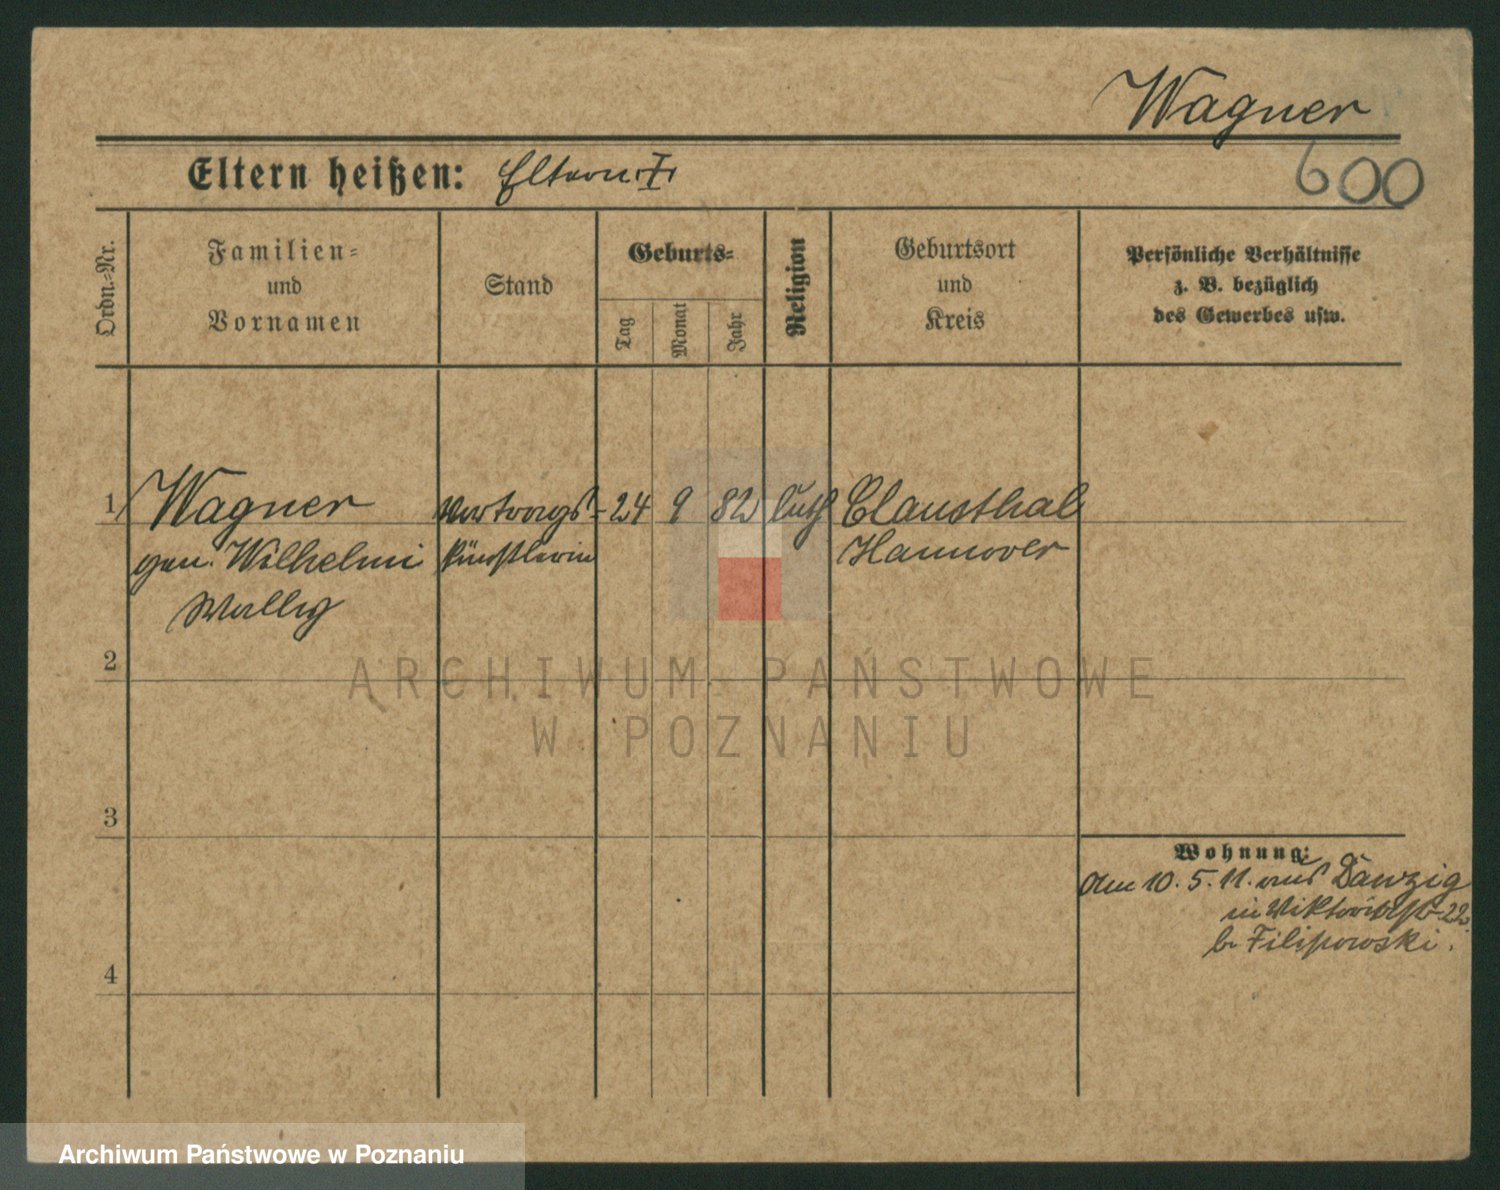 Wagner
600
Eltern heißen: Eltern
Ordn.-Nr.
Familien-
und
Vornamen
Stand
Geburts-
Tag
Monat
Jahr
Religion
Geburtsort
und
Kreis
Persönliche Verhältnisse
z. B. bezüglich
des Gewerbes usw.
1 Wagner Vortrags- 24 9 82 luth Clausthal
gen. Wilhelmi künstlerin Hannover
Wally
2
3
4
Wohnung:
Am 10. 5. 11. aus Danzig
in Viktoriastr 22
b Filipowski.
ARCHIWUM PAŃSTWOWE
W POZNANIU
Archiwum Państwowe w Poznaniu